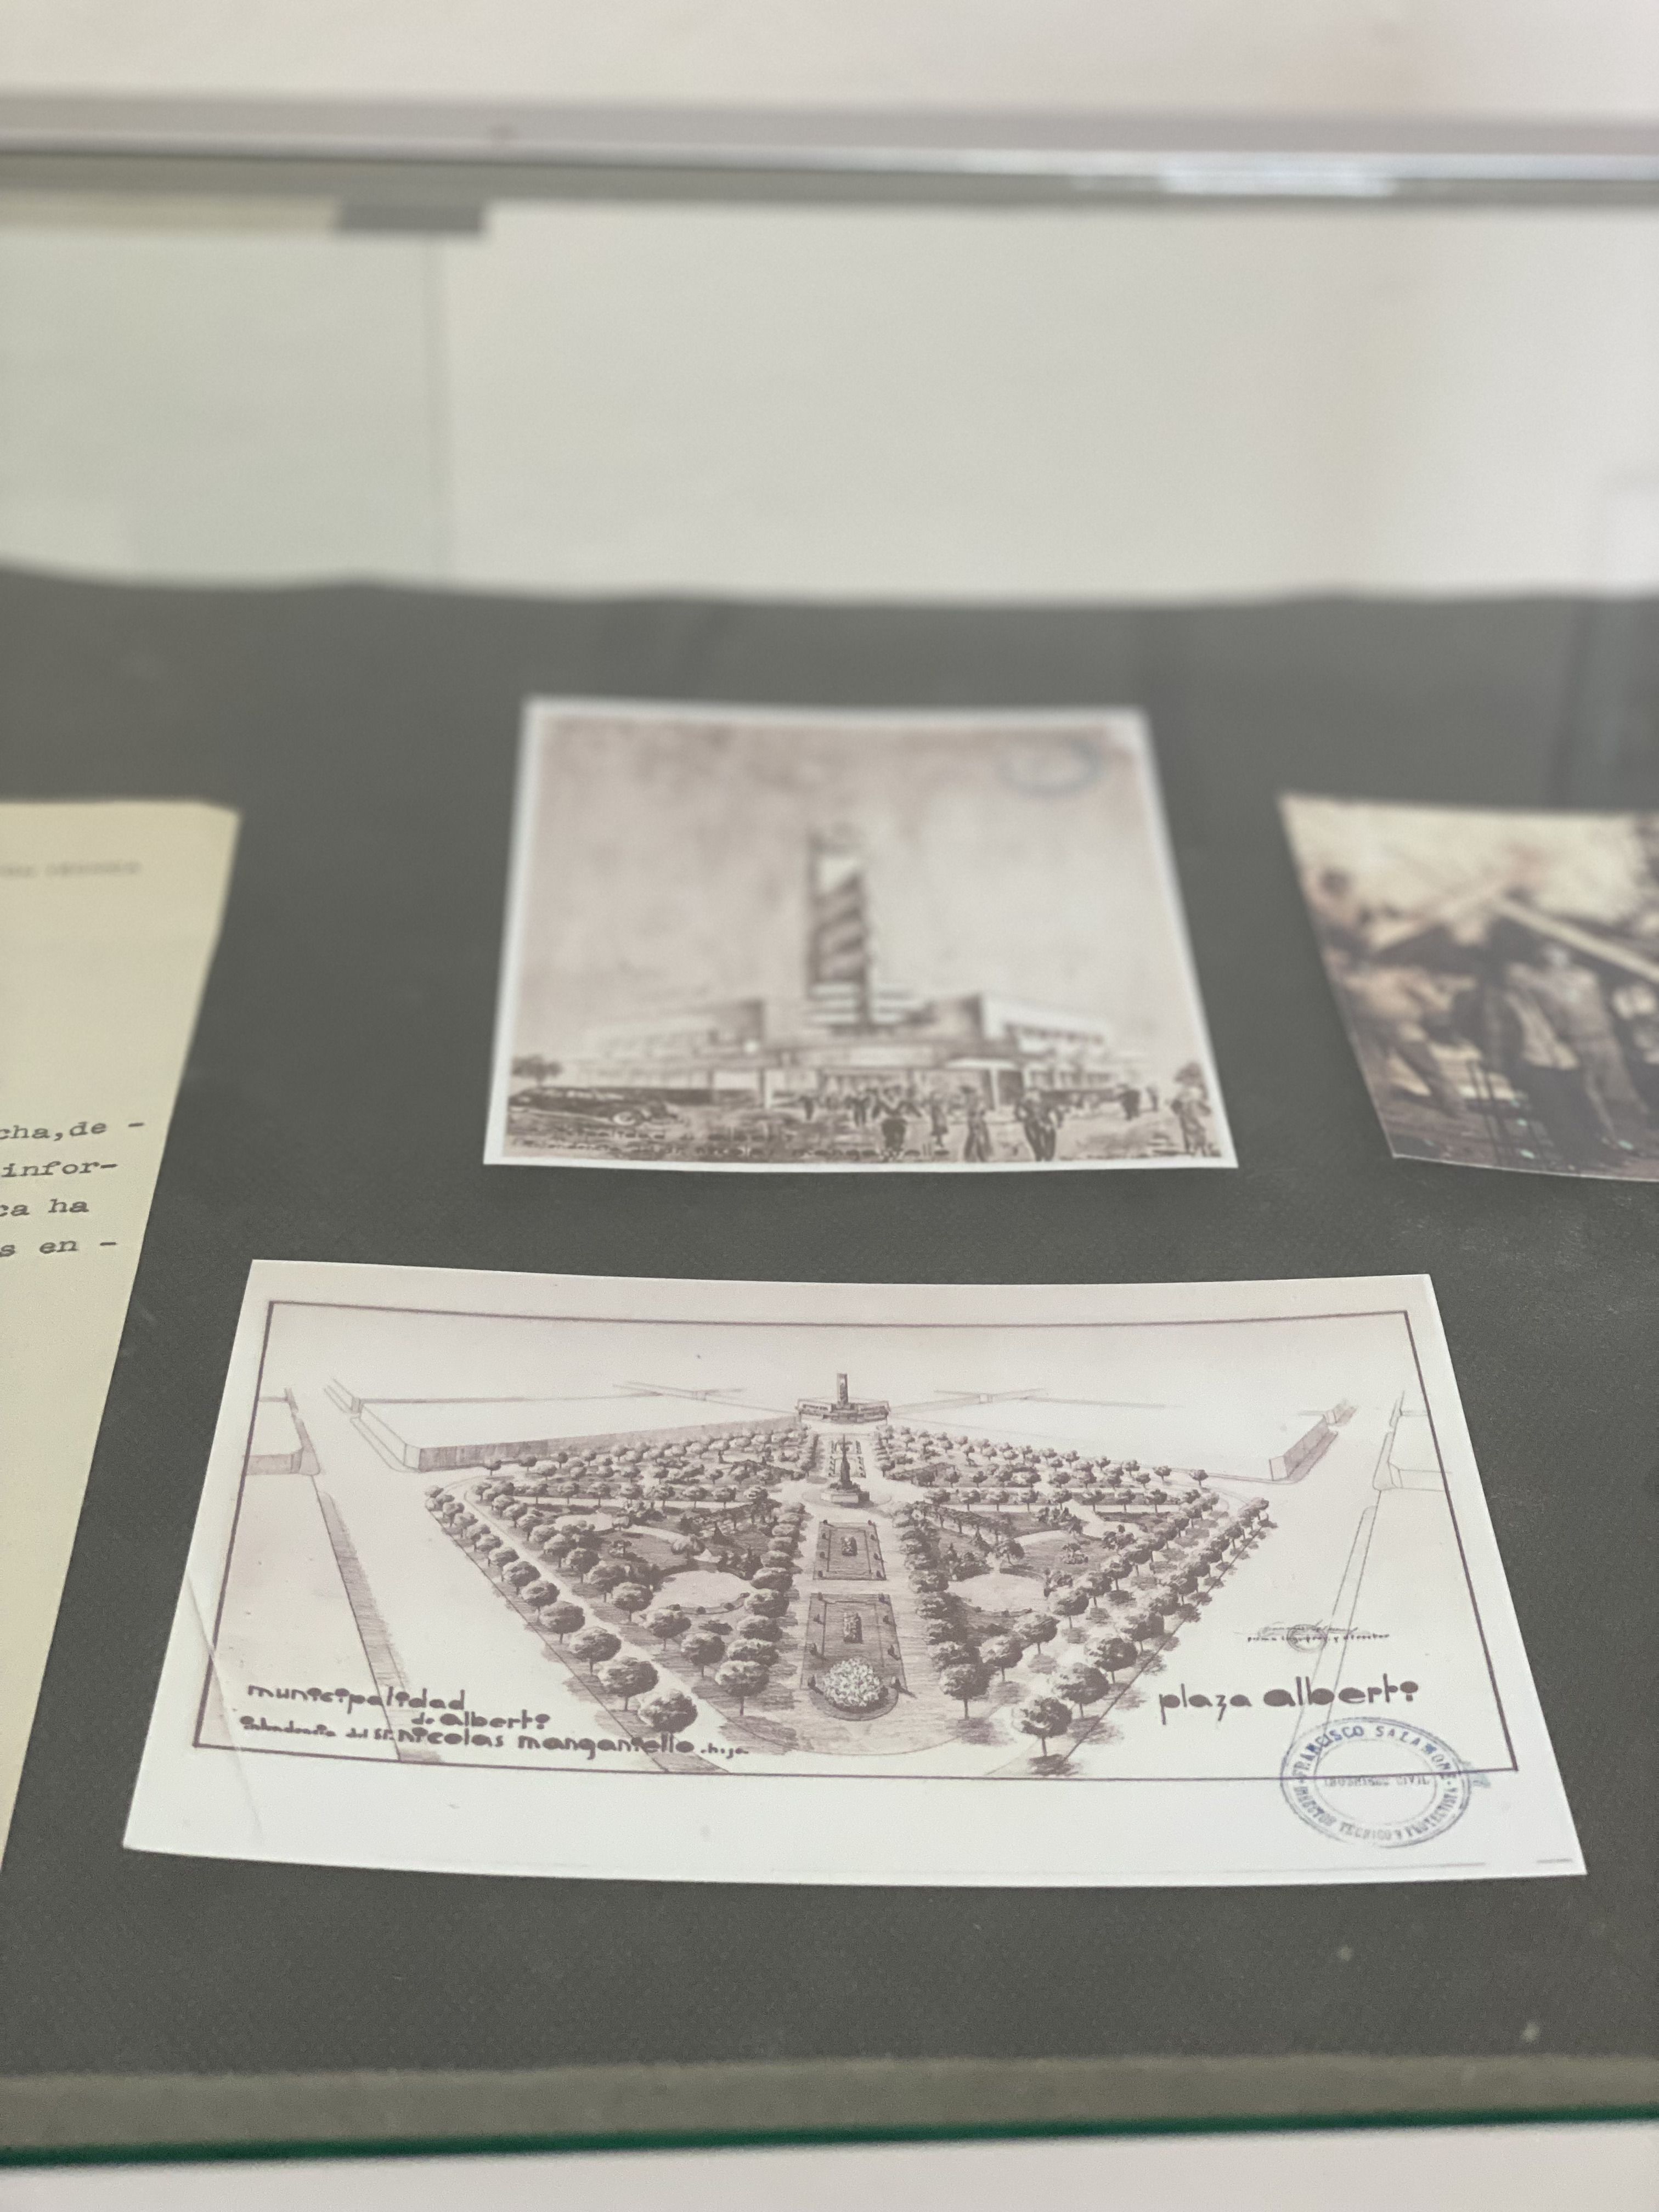 cha,de -
infor-
ca ha
s en -
municipalidad
de alberti
intendencia del Sr. nicolas manganiello .hijo
plaza alberti
FRANCISCO SALAMONE
INGENIERO CIVIL
DIRECTOR TECNICO Y PROYECTISTA